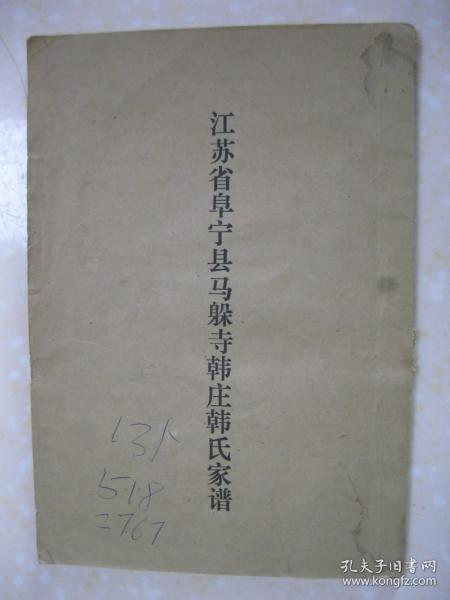 江苏省阜宁县马躲寺韩庄韩氏家谱
13人
518
2767
孔夫子旧书网
www.kongfz.com